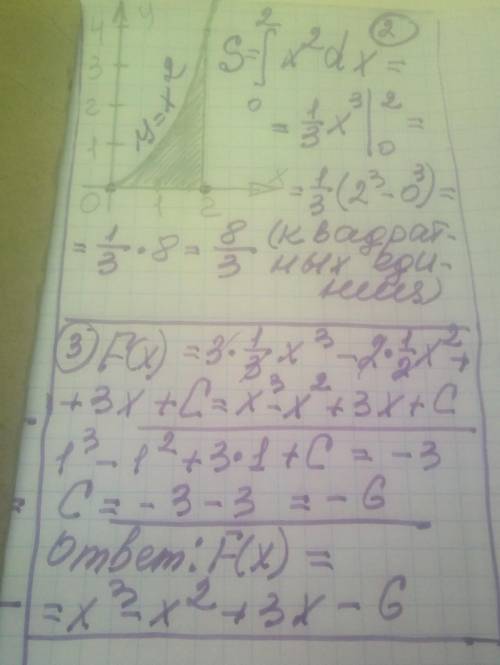 4 y
3
2
1
0 1 2 x
y=x2
②
S=∫₀² x²dx=
= 1/3 x³ |₀² =
= 1/3 (2³-0³)=
= 1/3 • 8 = 8/3 (квадрат-
ных еди-
ниц)
③ F(x) = 3•1/3•x³ - 2•1/2x² +
+ 3x + C = x³-x² + 3x + C
1³ - 1² + 3•1 + C = -3
C = -3 - 3 = -6
Ответ: F(x) =
= x³-x² + 3x - 6